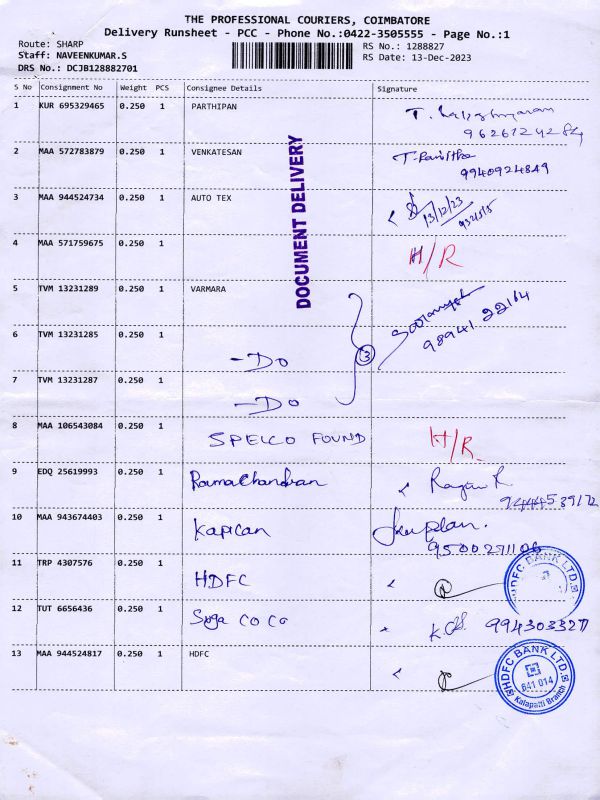 THE PROFESSIONAL COURIERS, COIMBATORE
Delivery Runsheet - PCC - Phone No.:0422-3505555 - Page No.:1
Route: SHARP
RS No.: 1288827
Staff: NAVEENKUMAR.S
RS Date: 13-Dec-2023
DRS No.: DCJB128882701
S No Consignment No Weight PCS Consignee Details Signature
1 KUR 695329465 0.250 1 PARTHIPAN
9626124284
2 MAA 572783879 0.250 1 VENKATESAN
9940924849
3 MAA 944524734 0.250 1 AUTO TEX
13/12/23
DOCUMENT DELIVERY
4 MAA 571759675 0.250 1 H/R
5 TVM 13231289 0.250 1 VARMARA
98941 22164
6 TVM 13231285 0.250 1 -DO
3
7 TVM 13231287 0.250 1 -DO
8 MAA 106543084 0.250 1 SPELCO FOUND H/R
9 EDQ 25619993 0.250 1 Ramachandran
10 MAA 943674403 0.250 1 Kapilan Kapilan.
9500271106
11 TRP 4307576 0.250 1 HDFC
HDFC BANK LTD.
12 TUT 6656436 0.250 1 Coco
13 MAA 944524817 0.250 1 HDFC
HDFC BANK LTD.
641 014
Kalapatti Branch